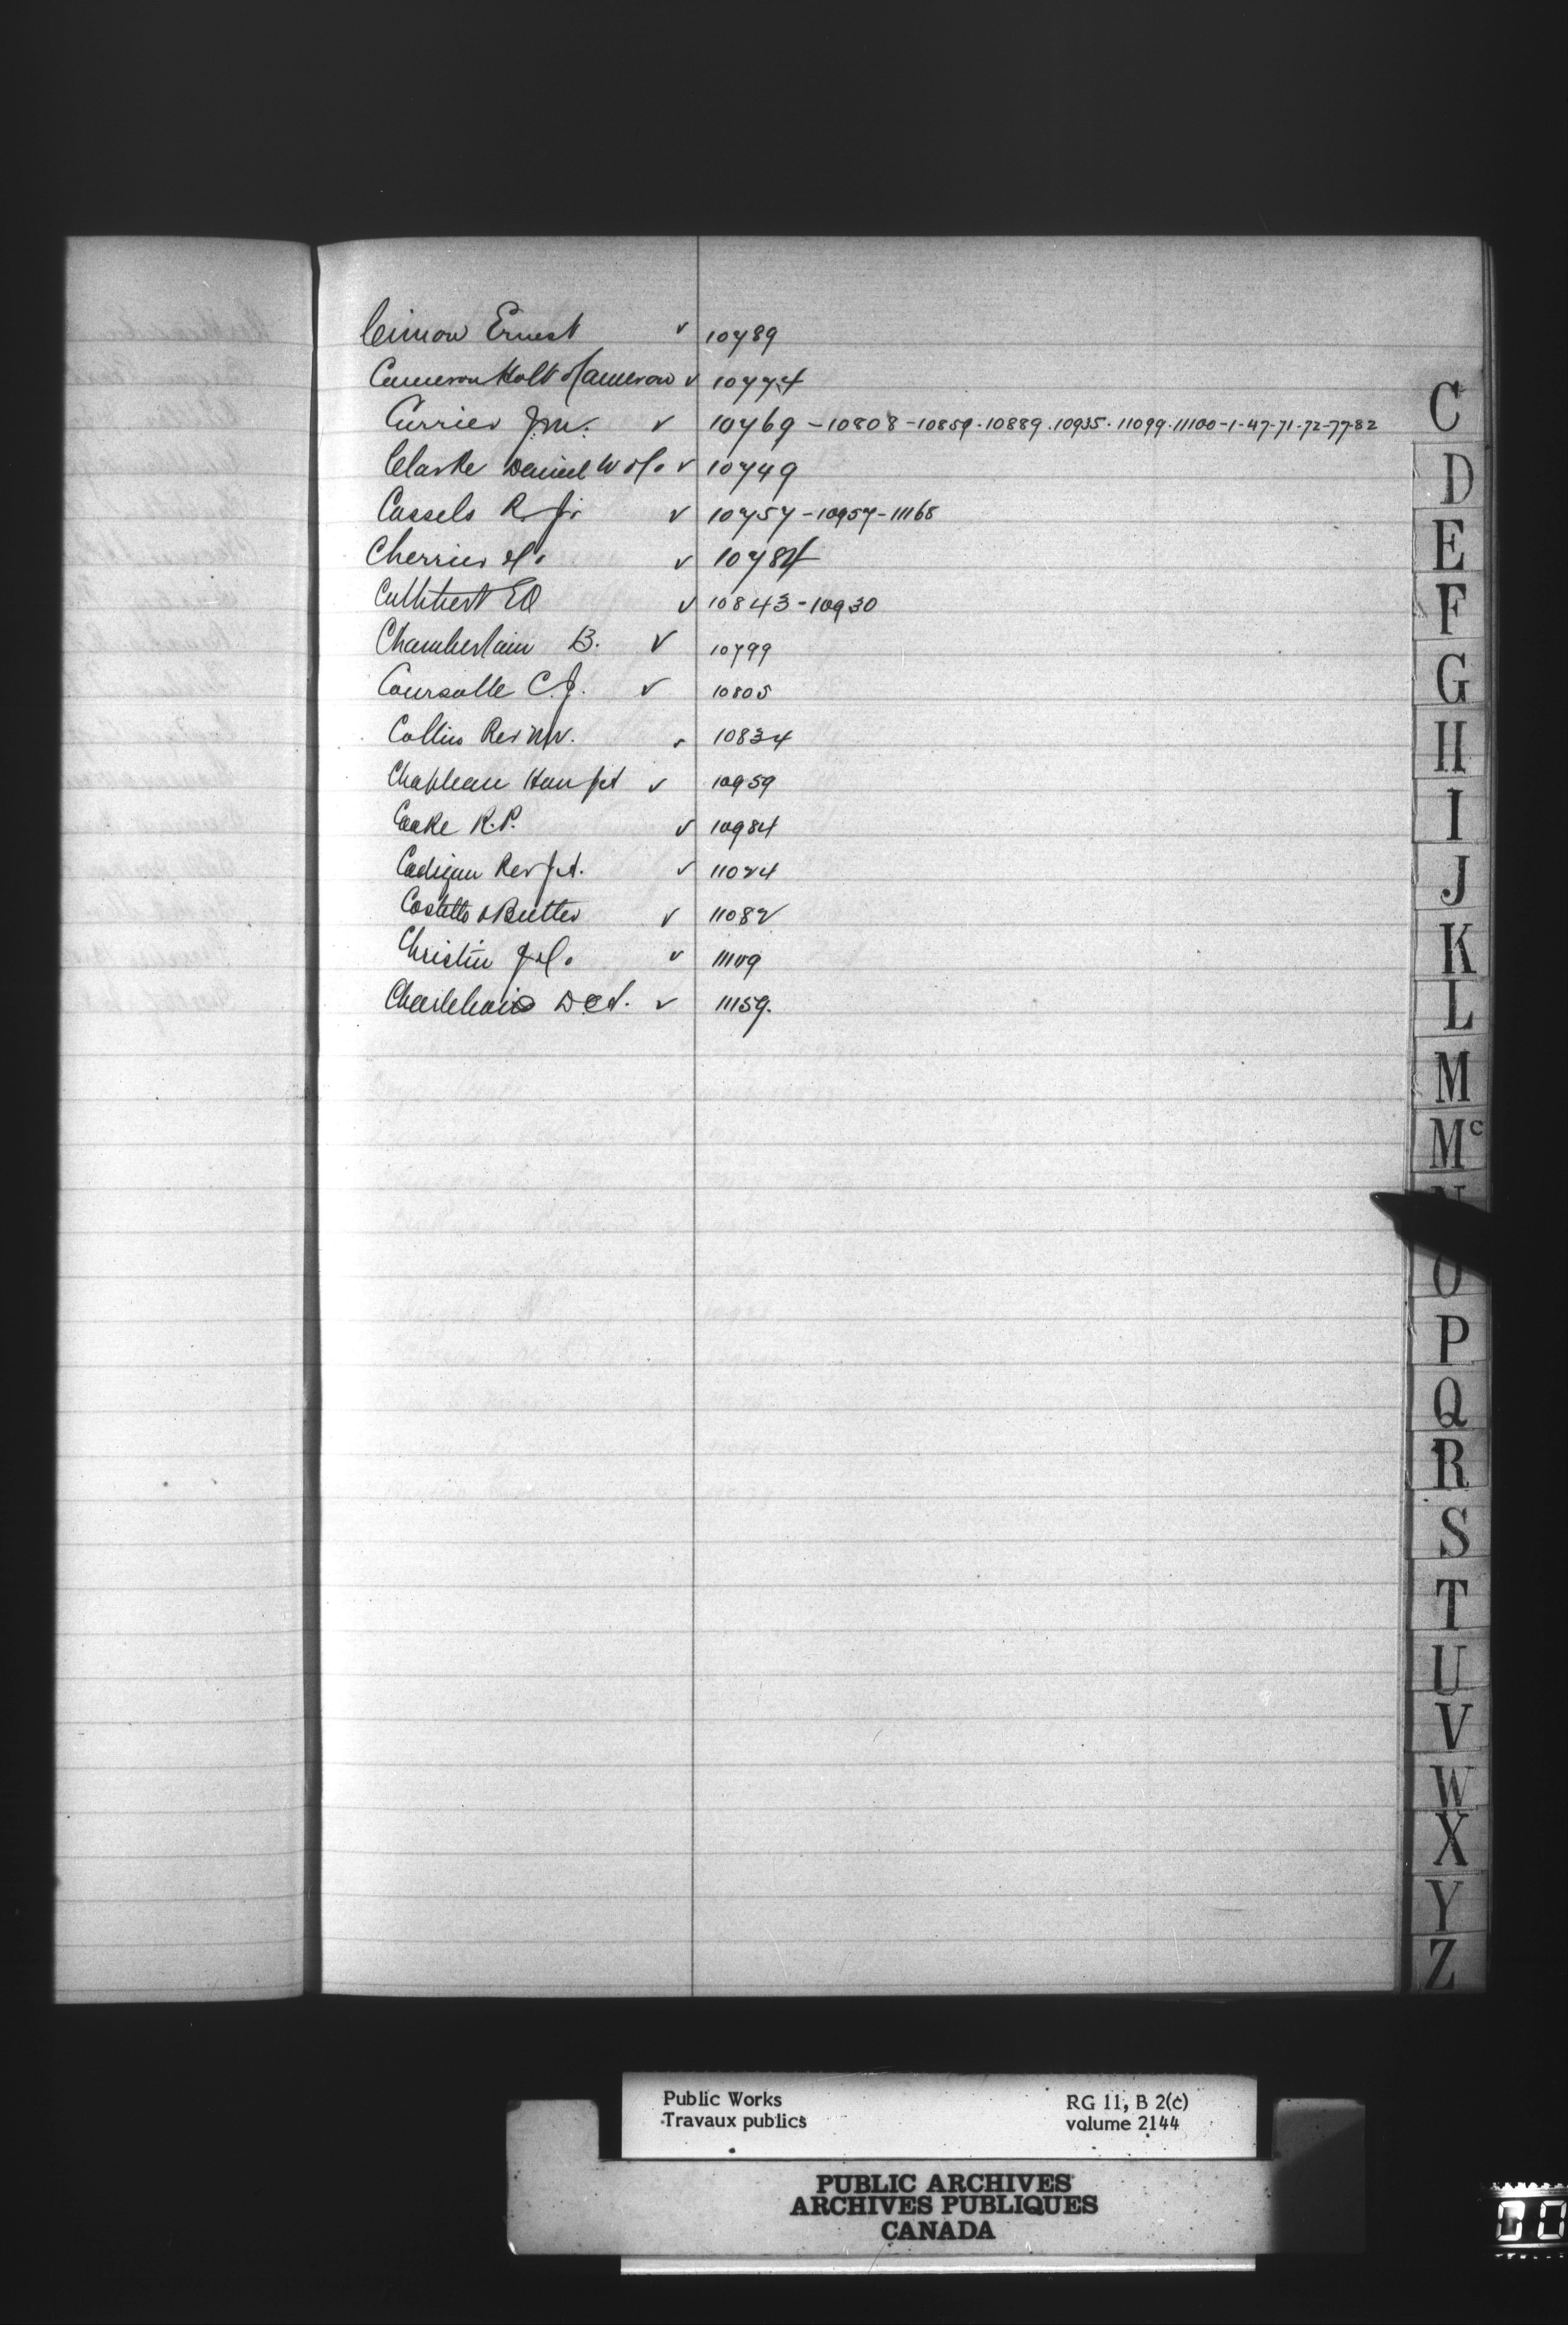 Cimon Ernest ✓ 10789
Cameron Holt & Cameron ✓ 10774
Currier J.M. ✓ 10769 - 10808 - 10859 - 10889 . 10935 . 11099 . 11100 - 1 - 47 - 71 - 72 - 77 - 82
Clarke Daniel W ✓ 10749
Cassels R. Jr ✓ 10757 - 10957 - 11168
Cherrier ✓ 10784
Cuthbert ✓ 10843 - 10930
Chamberlain B. ✓ 10799
Coursolle C.J. ✓ 10805
Collin Rev 10834
Chapleau Hon J.A ✓ 10959
Coake R.P. ✓ 10984
Cadigan Rev J.A. ✓ 11024
Costello & Butler ✓ 11082
Christin ✓ 11109
Charlebois ✓ 11159.
C
D
E
F
G
H
I
J
K
L
M
Mc
N
O
P
Q
R
S
T
U
V
W
X
Y
Z
Public Works RG 11, B 2(c)
Travaux publics volume 2144
PUBLIC ARCHIVES
ARCHIVES PUBLIQUES
CANADA